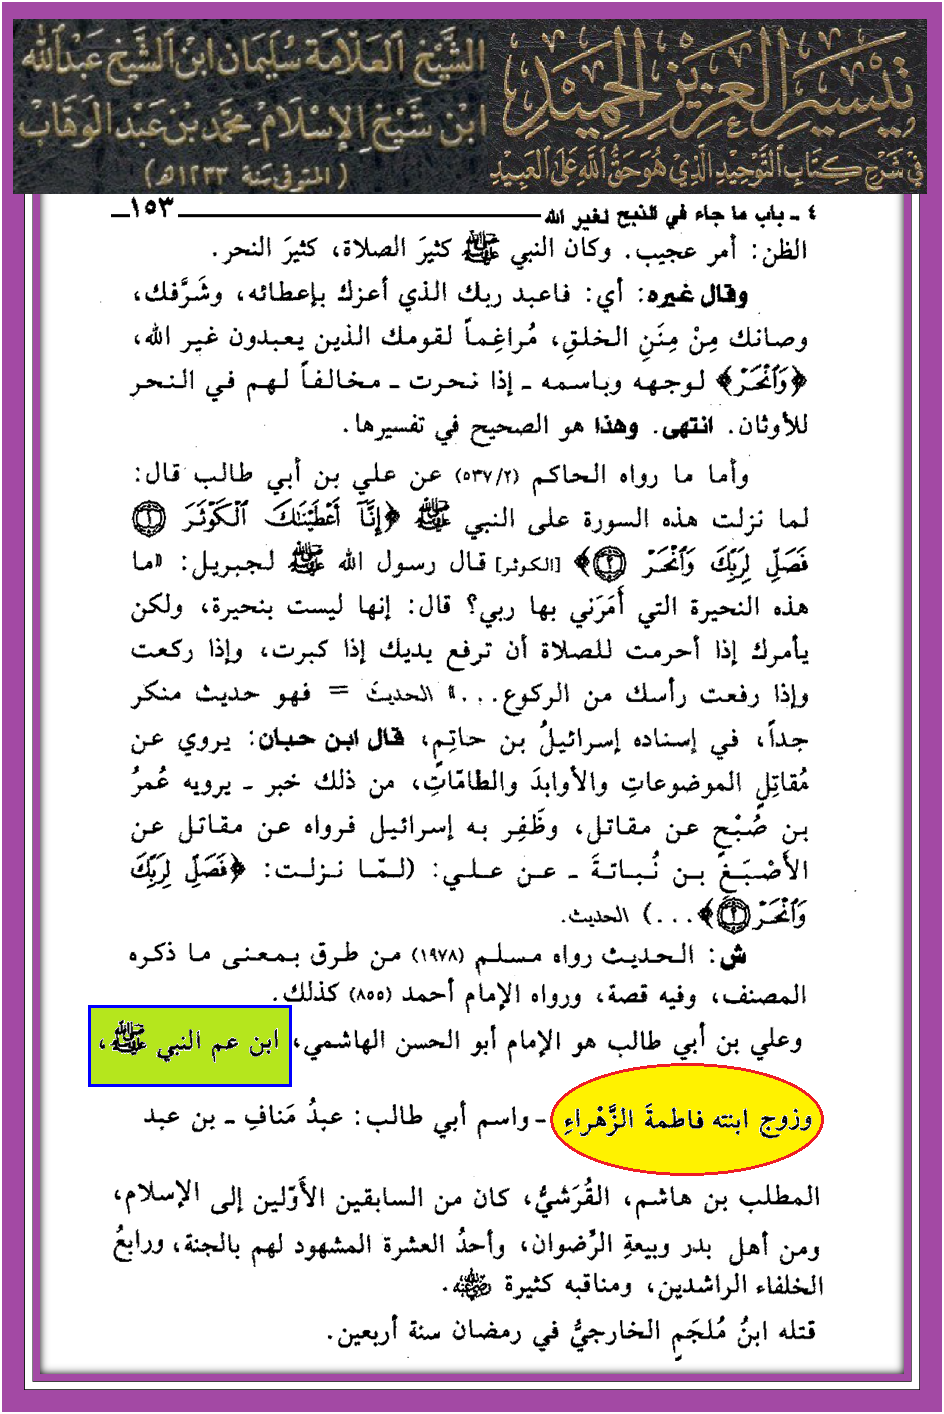 تيسير العزيز الحميد
في شرح كتاب التوحيد الذي هو حق الله على العبيد
الشيخ العلامة سليمان ابن الشيخ عبدالله
ابن شيخ الإسلام محمد بن عبد الوهاب
(المتوفى سنة ١٢٣٣هـ)
٤ ـ باب ما جاء في الذبح لغير الله ١٥٣
الظن: أمر عجيب. وكان النبي ﷺ كثيرَ الصلاة، كثيرَ النحر.
وقال غيره: أي: فاعبد ربك الذي أعزك بإعطائه، وشَرَّفك،
وصانك مِنْ مِنَنِ الخلقِ، مُراغِماً لقومك الذين يعبدون غير الله،
﴿وَٱنْحَرْ﴾ لوجهه وباسمه ـ إذا نحرت ـ مخالفاً لهم في النحر
للأوثان. انتهى. وهذا هو الصحيح في تفسيرها.
وأما ما رواه الحاكم (٥٣٧/٢) عن علي بن أبي طالب قال:
لما نزلت هذه السورة على النبي ﷺ ﴿إِنَّآ أَعْطَيْنَٰكَ ٱلْكَوْثَرَ ۝١
فَصَلِّ لِرَبِّكَ وَٱنْحَرْ ۝٢﴾ [الكوثر] قال رسول الله ﷺ لجبريل: «ما
هذه النحيرة التي أَمَرَني بها ربي؟ قال: إنها ليست بنحيرة، ولكن
يأمرك إذا أحرمت للصلاة أن ترفع يديك إذا كبرت، وإذا ركعت
وإذا رفعت رأسك من الركوع...» الحديثَ = فهو حديث منكر
جداً، في إسناده إسرائيلُ بن حاتِمٍ، قال ابن حبان: يروي عن
مُقاتِلٍ الموضوعاتِ والأوابدَ والطامّاتِ، من ذلك خبر ـ يرويه عُمرُ
بن صُبْحٍ عن مقاتل، وظَفِر به إسرائيل فرواه عن مقاتل عن
الأَصْبَغِ بن نُباتةَ ـ عن علي: (لمّا نزلت: ﴿فَصَلِّ لِرَبِّكَ
وَٱنْحَرْ ۝٢﴾...) الحديث.
ش: الحديث رواه مسلم (١٩٧٨) من طرق بمعنى ما ذكره
المصنف، وفيه قصة، ورواه الإمام أحمد (٨٥٥) كذلك.
وعلي بن أبي طالب هو الإمام أبو الحسن الهاشمي، ابن عم النبي ﷺ،
وزوج ابنته فاطمةَ الزَّهْراءِ ـ واسم أبي طالب: عبدُ مَنافِ ـ بن عبد
المطلب بن هاشم، القُرَشيُّ، كان من السابقين الأَوّلين إلى الإسلام،
ومن أهل بدر وبيعةِ الرِّضوان، وأحدُ العشرة المشهود لهم بالجنة، ورابعُ
الخلفاء الراشدين، ومناقبه كثيرة رضي الله عنه.
قتله ابنُ مُلجَمٍ الخارجيُّ في رمضان سنة أربعين.